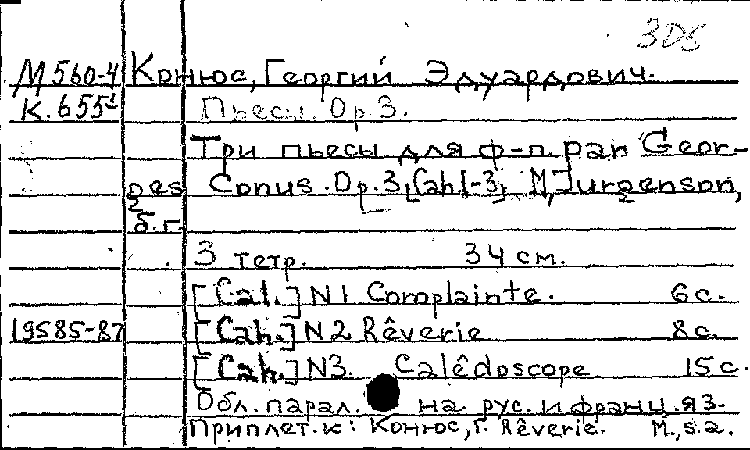 3D5
М 560-4 Конюс, Георгий Эдуардович.
К. 655 Пьесы. Ор. 3.
Три пьесы для ф-п. par Geor-
рез Conus. Op. 3, Cah 1-3, M, Jurgenson,
б.г.
3 тетр. 34 см.
[Cal.] N1 Complainte. 6 с.
19585-87 [Cah.] N2 Rêverie 8 с.
[Cah.] N3. Calêdoscope 15 с.
Обл. парал. на рус. и франц. яз.
Приплет. к: Конюс, Г. Rêverie. М., s.a.